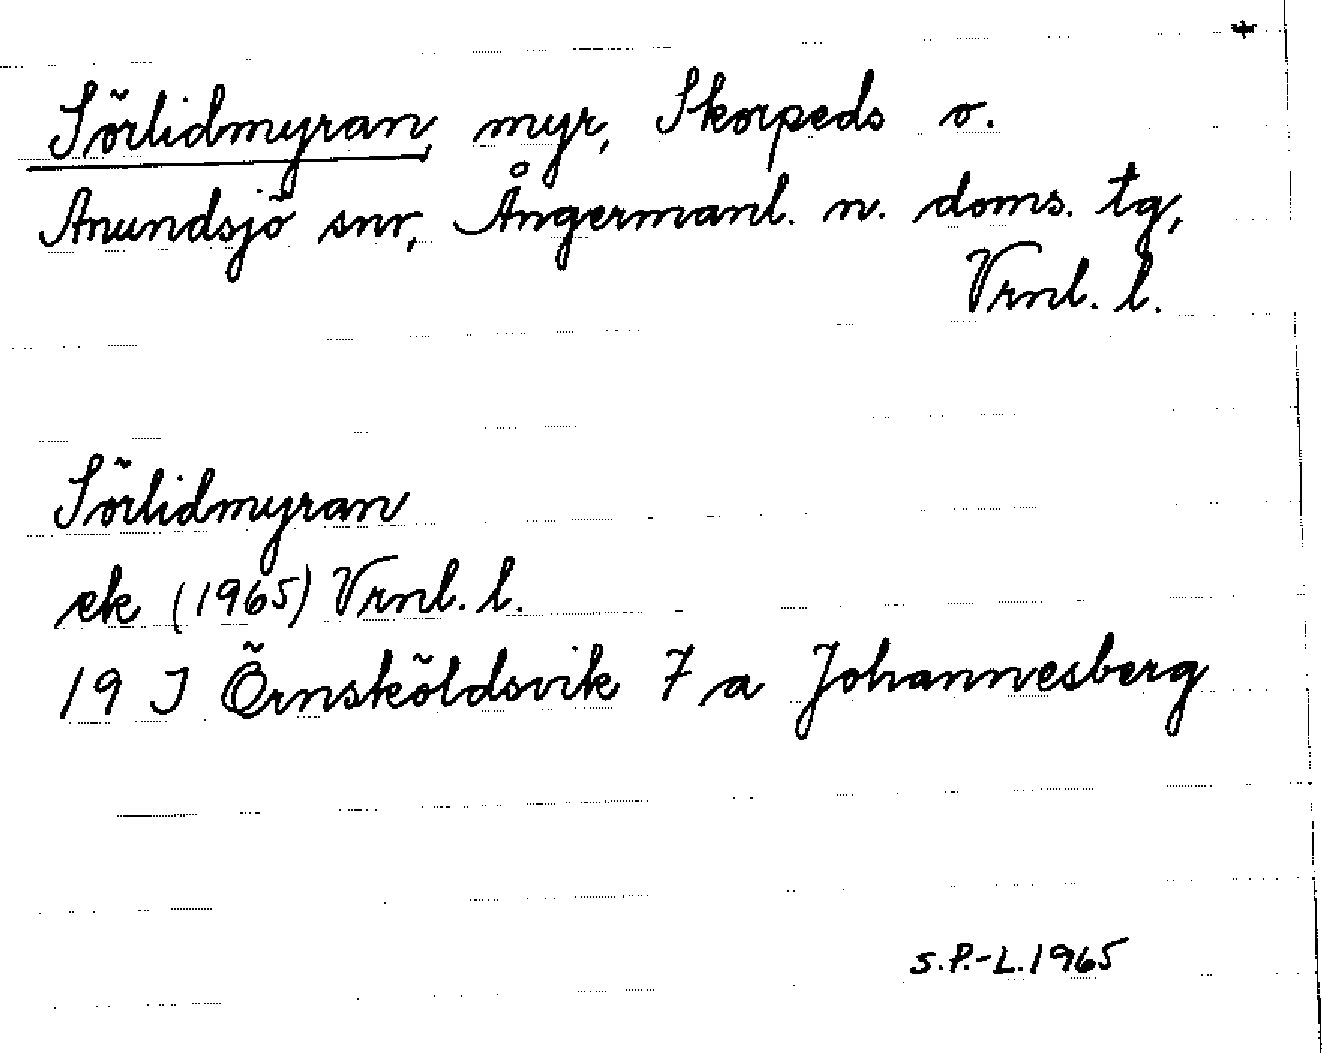 Sörlidmyran, myr, Skorpeds o.
Anundsjö snr, Ångermanl. n. doms. tg,
Vrnl. l.
Sörlidmyran
ek (1965) Vrnl. l.
19 J Örnsköldsvik 7 a Johannesberg
S.P.-L.1965